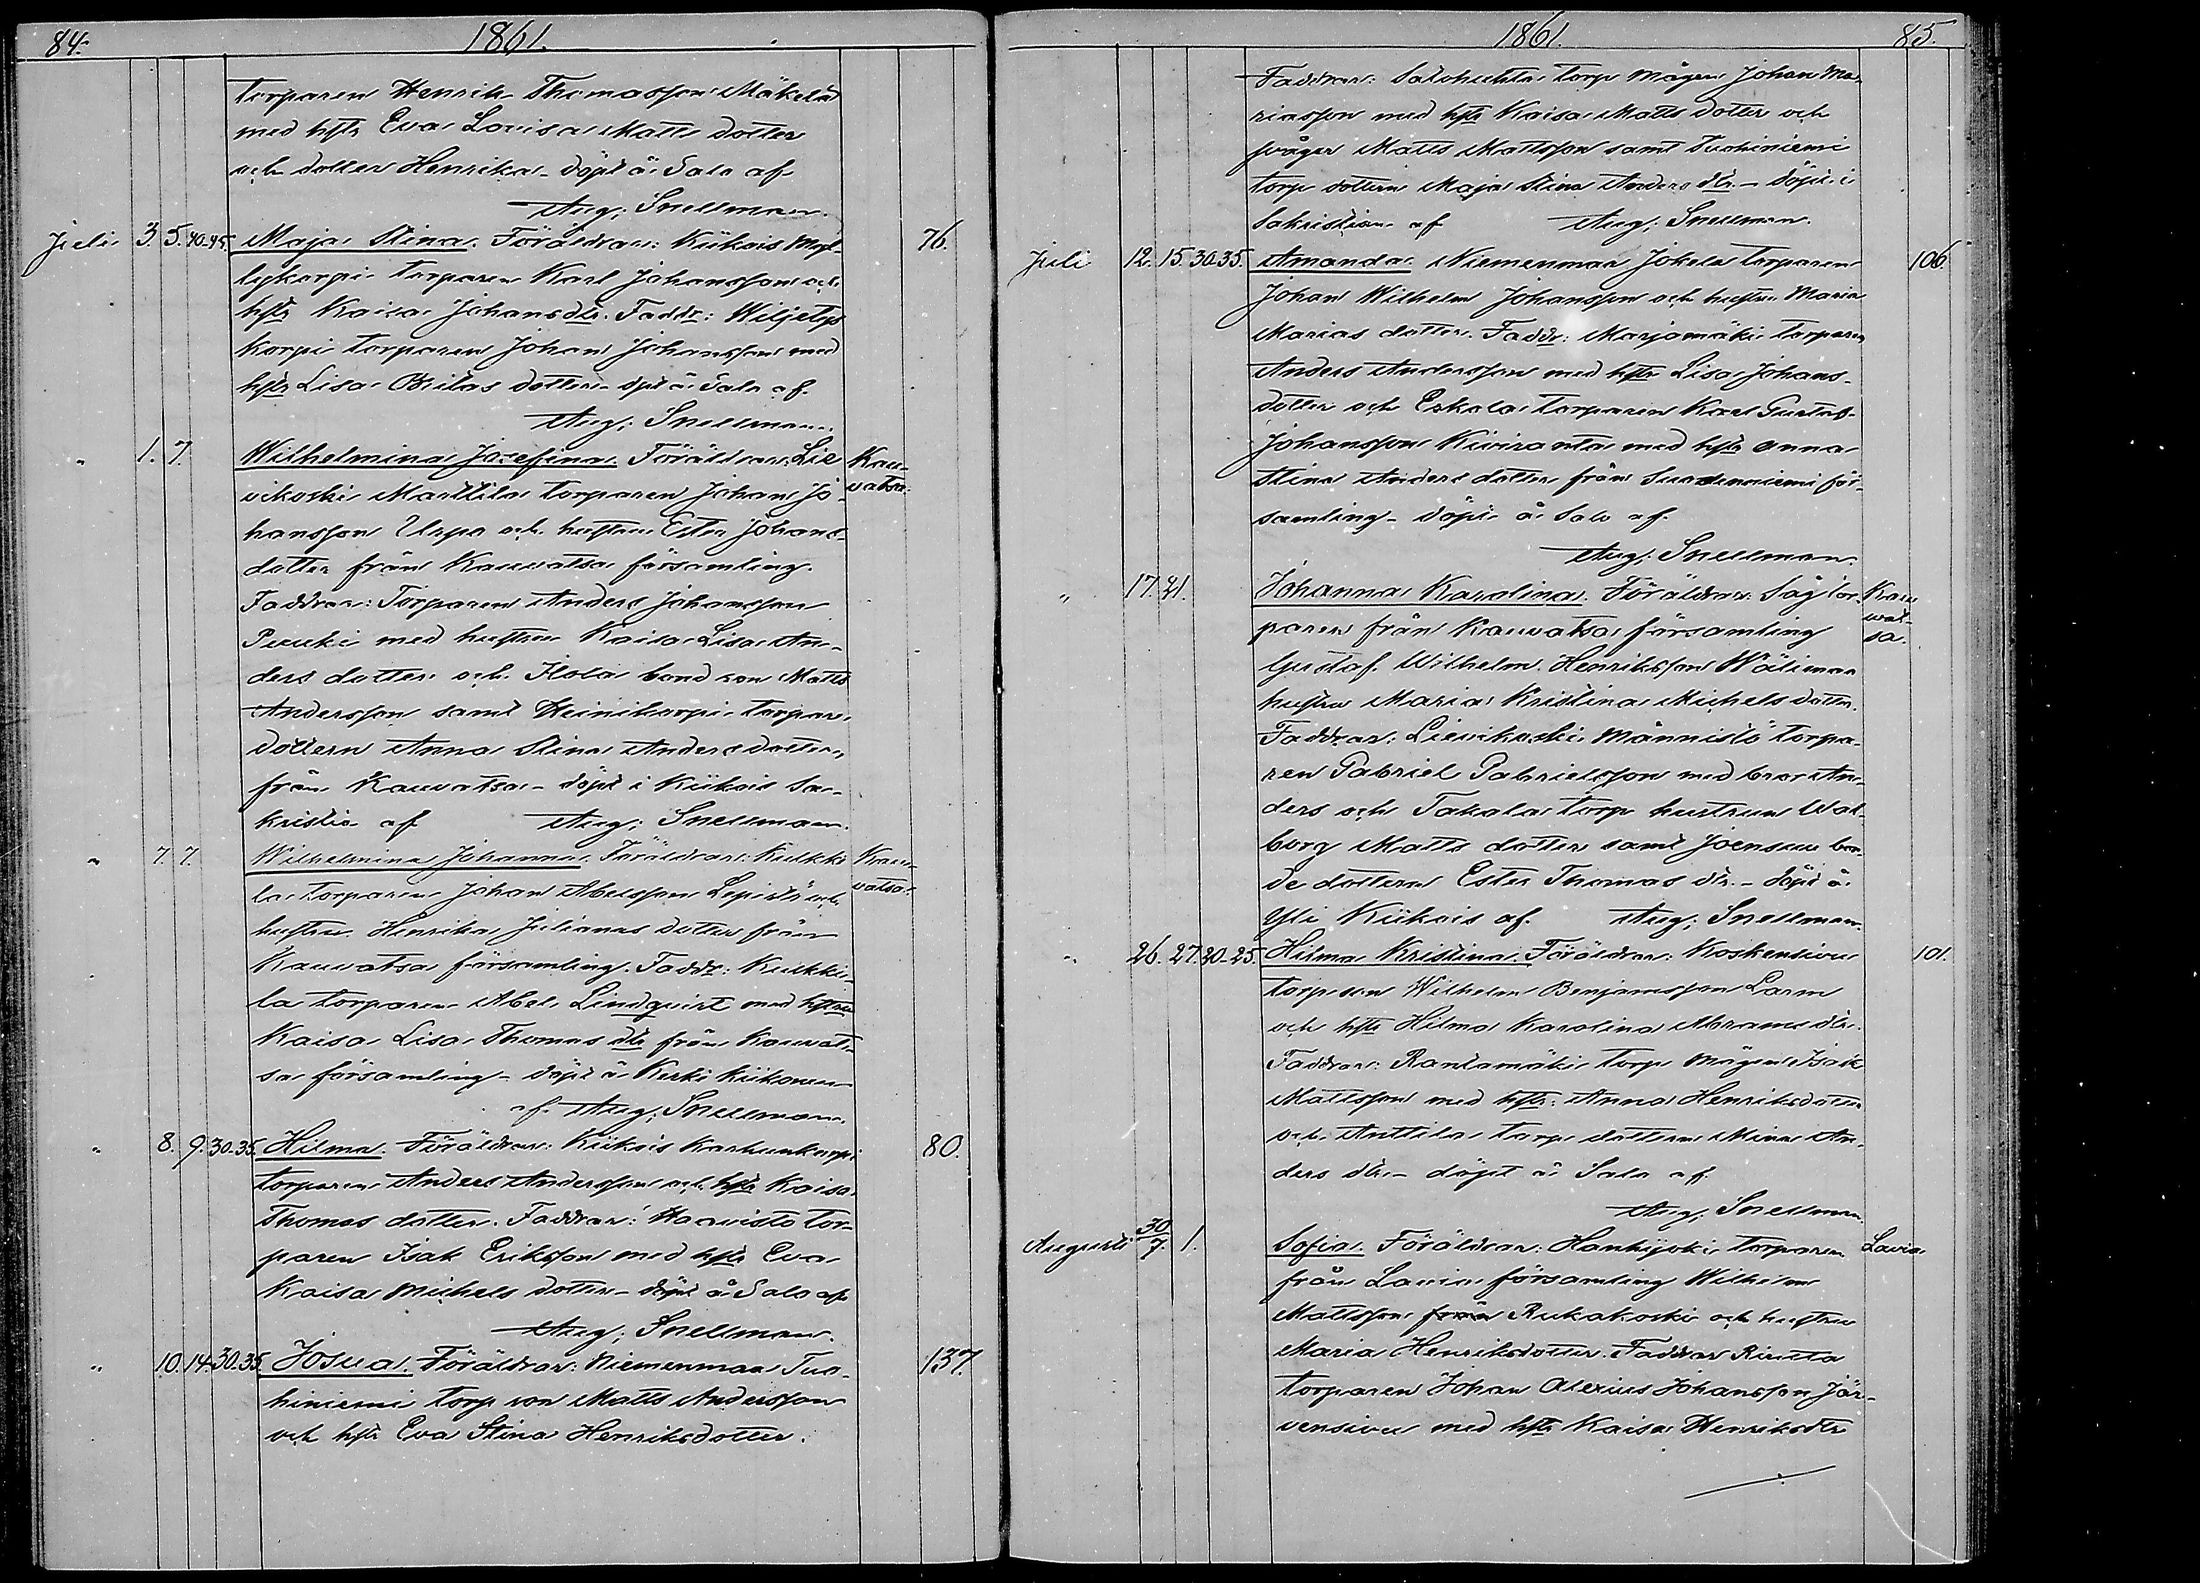 84. 1861.
torparen Henrik Thomasson Mäkelä
med hstr Eva Lovisa Matts dotter
och dotter Henrika – döpt å Salo af
Aug; Snellman.
Juli 3. 5. 40-45. Maja Stina. Föräldrar: Kiikois 76.
torparen Karl Johansson och
hstr Kaisa Johansdtr. Faddr:
Korpi torparen Johan Johansson med
hstr Lisa Britas dotter – dpt å Salo af
Aug; Snellman.
" 1. 7. Wilhelmina Josefina. Föräldrar: Lie Kau-
vikoski Marttila torparen Johan Jo- vatsa.
hansson Urpa och hustru Ester Johans-
dotter från Kauvatsa församling.
Faddrar: Torparen Anders Johansson
Peuki med hustru Kaisa Lisa An-
ders dotter och Ilola bond son Matts
Andersson samt Heinikorpi torpare
dottern Anna Stina Anders dotter,
från Kauvatsa – döpt i Kiikois Sa-
kristia af Aug; Snellman.
" 7. 7. Wilhelmina Johanna. Föräldrar: Kulkki Kau-
la torparen Johan Abelsson Lepistö och vatsa.
hustru Henrika Julianas dotter från
Kauvatsa församling. Faddr: Kulkki-
la torparen Abel Lindqvist med hstru
Kaisa Lisa Thomas dtr från Kauvat-
sa församling – döpt å Keski Kiikonen
af. Aug; Snellman.
" 8. 9. 30. 35. Hilma. Föräldrar: Kiikois Karhunkorpi 80.
torparen Anders Andersson och hstr Kaisa
Thomas dotter. Faddrar: Haavisto tor-
paren Isak Eriksson med hstr Eva
Kaisa Michels dotter – döpt å Salo af
Aug; Snellman.
" 10. 14. 30. 35. Josua. Föräldrar: Niemenmaa Tuo- 137.
hiniemi torp son Matts Andersson
och hstr Eva Stina Henriksdotter.
1861. 85.
Faddrar: Satohuhta torp mågen Johan Ma-
riasson med hstr Kaisa Matts dotter och
svåger Matts Mattsson samt Tuohiniemi
torp dottern Maja Stina Anders dtr. – döpt i
Sakristian af Aug; Snellman.
Juli 12. 15. 30. 35. Amanda. Niemenmaa Jokela torparen 106.
Johan Wilhelm Johansson och hustru Maria
Marias dotter. Faddr: Marjamäki torparen
Anders Andersson med hstr Lisa Johans-
dotter och Eskola torparen Karl Gustaf
Johansson Kiviranta med hstr Anna
Stina Anders dotter från Suodenniemi för-
samling – döpt å Salo af
Aug; Snellman.
" 17. 21. Johanna Karolina. Föräldrar: Såg tor- Kau
paren från Kauvatsa församling vat-
Gustaf Wilhelm Henriksson Wälimaa sa.
hustru Maria Kristina Michels dotter.
Faddrar: Lievikoski Männistö torpa-
ren Gabriel Gabrielsson med bror An-
ders och Takala torp hustrun Wal-
borg Matts dotter samt Joensuu bon-
de dottern Ester Thomas dtr. – döpt å
Yli Kiikois af. Aug; Snellman.
" 26. 27. 20-25. Hilma Kristina. Föräldrar: Koskensivu 101.
torp son Wilhelm Benjamsson Larm
och hstr Hilma Karolina Abrams dtr.
Faddrar: Rantamäki torp mågen Isak
Mattsson med hstr: Anna Henriksdotter
och Anttila torp dottern Mina An-
ders dtr. – döpt å Salo af
Aug; Snellman.
Augusti 30/7. 1. Sofia. Föräldrar: Hanhijoki torparen Lavia
från Lavia församling Wilhelm
Mattsson från Rukakoski och hustru
Maria Henriksdotter. Faddrar
torparen Johan Alexius Johansson Jär-
vensivu med hstr Kaisa Henriksdtr